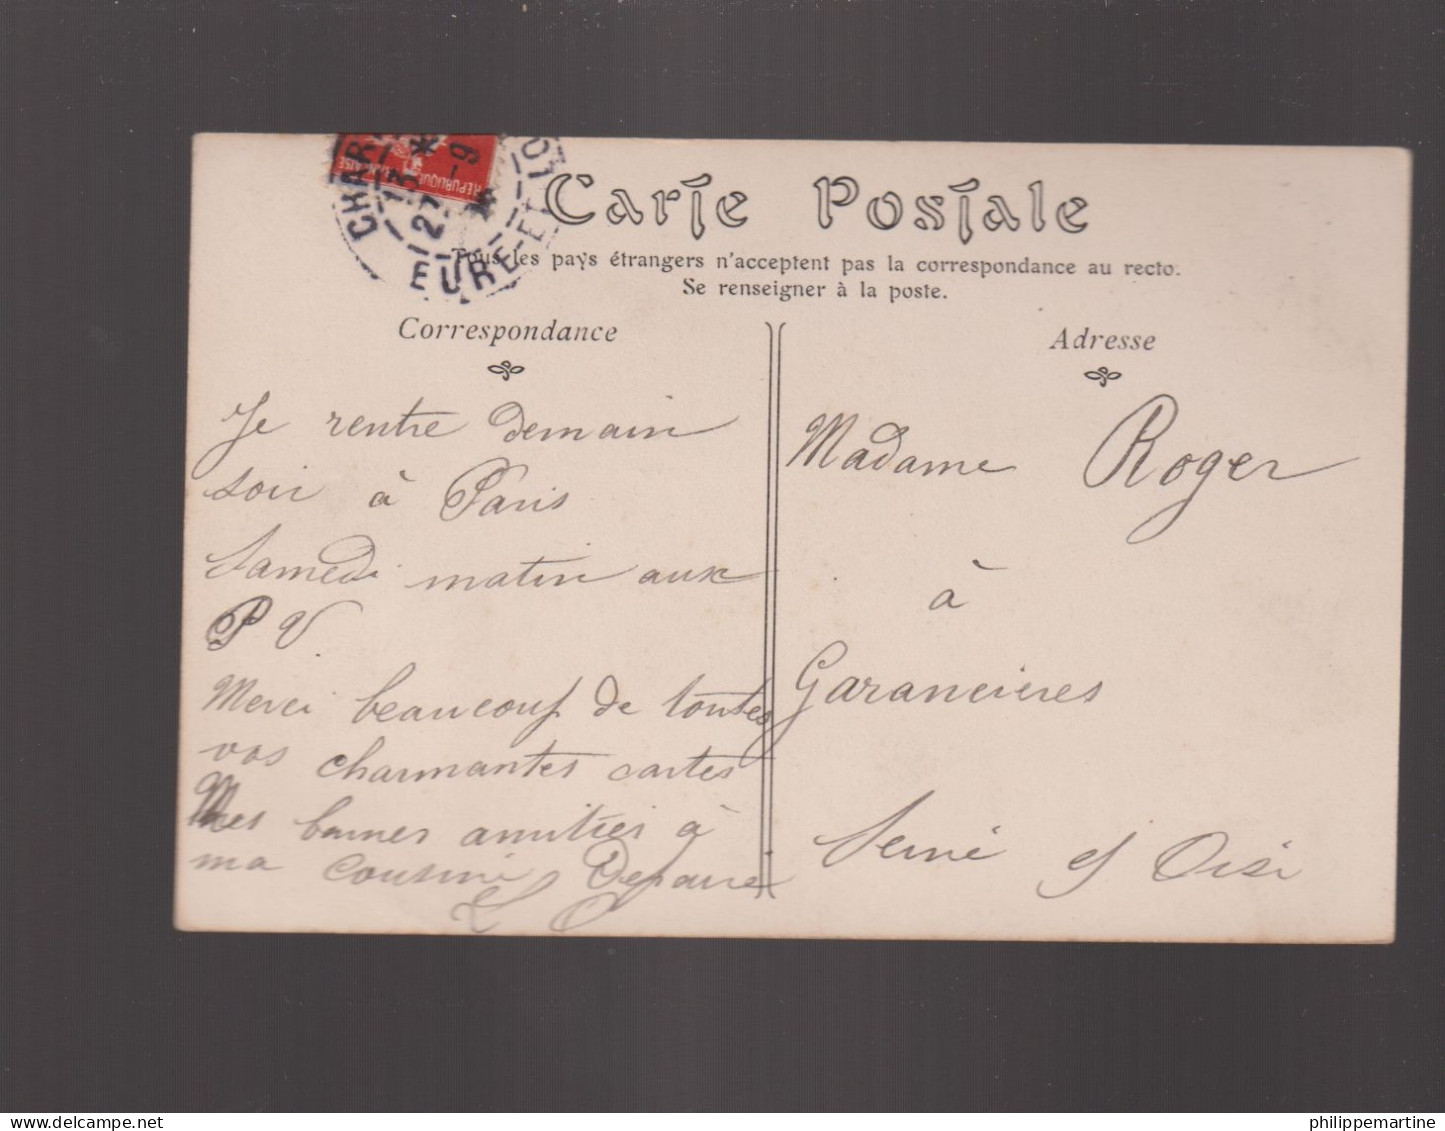 CHAR
13 *
27 -9
EURE-ET-LO
REPUBLIQUE FRANÇAISE
Carte Postale
Tous les pays étrangers n'acceptent pas la correspondance au recto.
Se renseigner à la poste.
Correspondance
Je rentre demain
soir à Paris
Samedi matin aux
P V.
Merci beaucoup de toutes
vos charmantes cartes
Mes bonnes amitiés à
ma cousine
Adresse
Madame Roger
à
Garancières
Seine et Oise
philippemartine